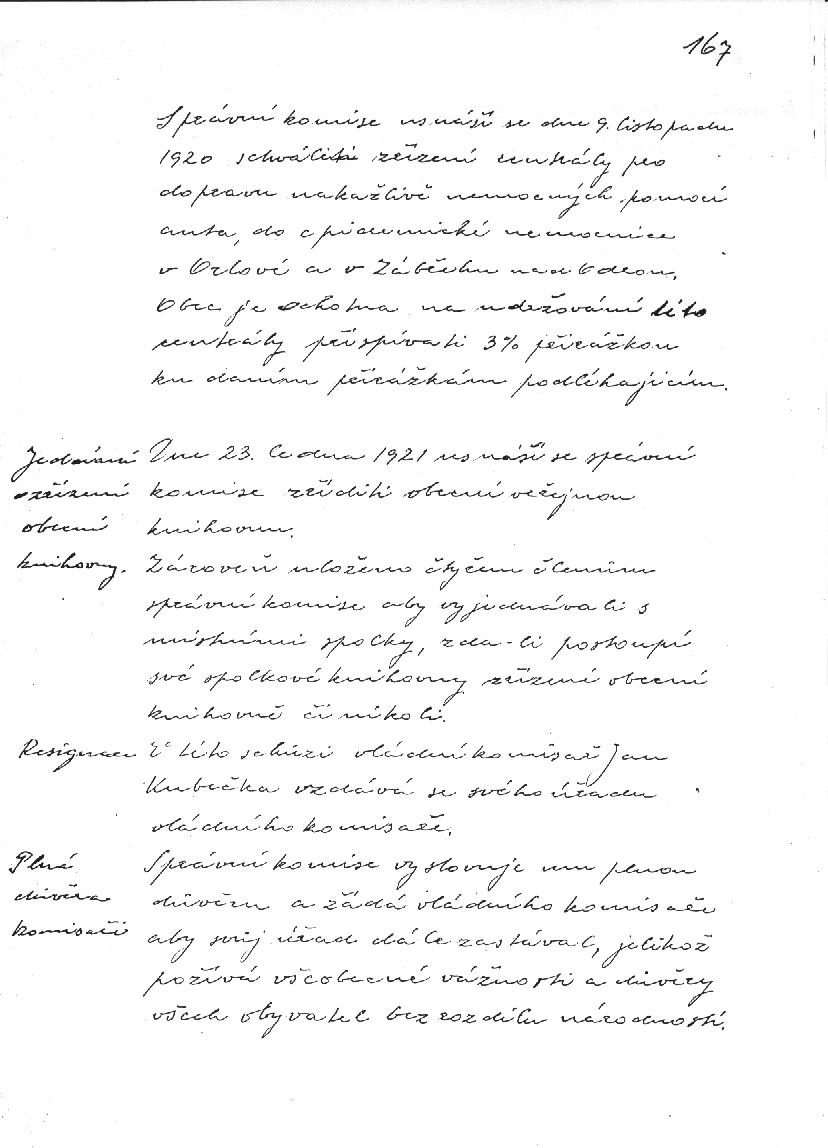 167
Správní komise usnáší se dne 9. listopadu
1920 schváliti zřízení centrály pro
dopravu nakažlivě nemocných pomocí
auta, do epidemické nemocnice
v Orlové a v Zábřehu nad Odrou.
Obec je ochotna na udržování této
centrály přispívati 3% přirážkou
ku daním přirážkám podléhajícím.
Jednání
o zřízení
obecní
knihovny.
Dne 23. ledna 1921 usnáší se správní
komise zříditi obecní veřejnou
knihovnu.
Zároveň uloženo čtyřem členům
správní komise aby vyjednávali s
místními spolky, zda-li postoupí
své spolkové knihovny zřízené obecní
knihovně či nikoli.
Resignace
V této schůzi vládní komisař Jan
Kubečka vzdává se svého úřadu
vládního komisaře.
Plná
důvěra
komisaři
Správní komise vyslovuje mu plnou
důvěru a žádá vládního komisaře
aby svůj úřad dále zastával, jelikož
požívá všeobecné vážnosti a důvěry
všech obyvatel bez rozdílu národnosti.